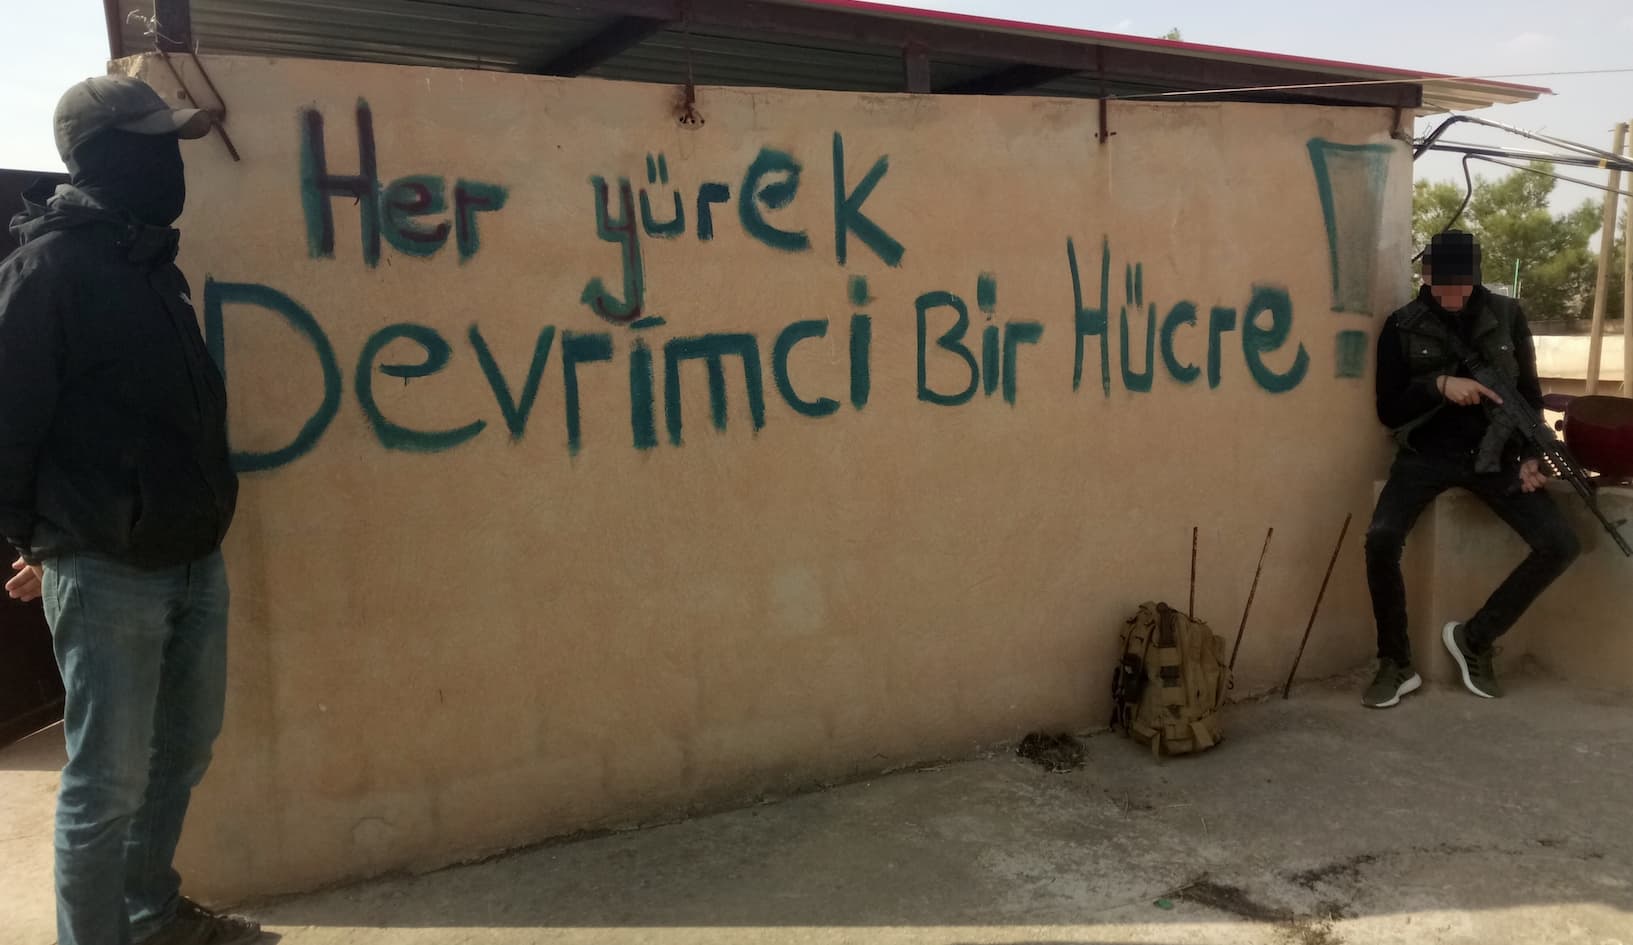 Her yürek
Devrimci Bir Hücre!